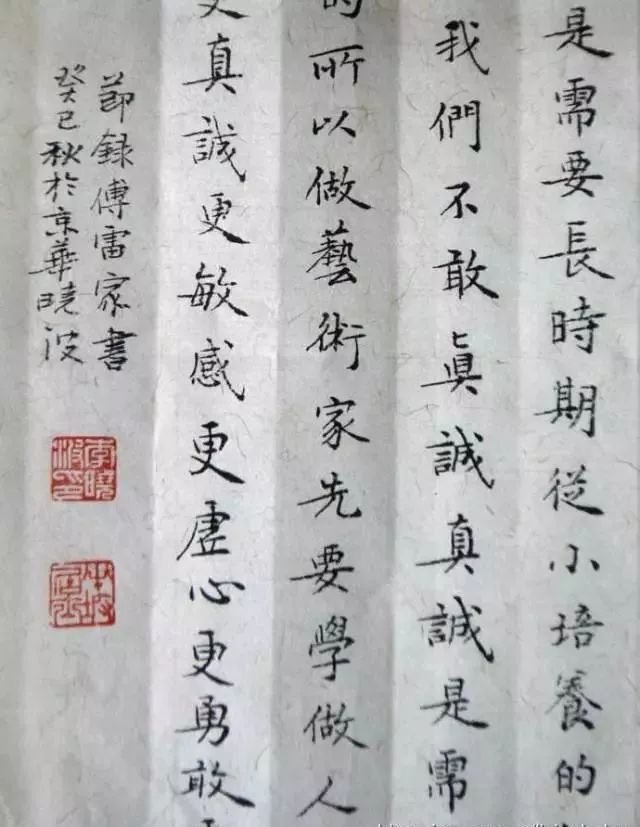 是需要長時期從小培養的
我們不敢真誠真誠是需
的所以做藝術家先要學做人
更真誠更敏感更虛心更勇敢
節録傅雷家書
癸巳秋於京華曉波
李曉波印